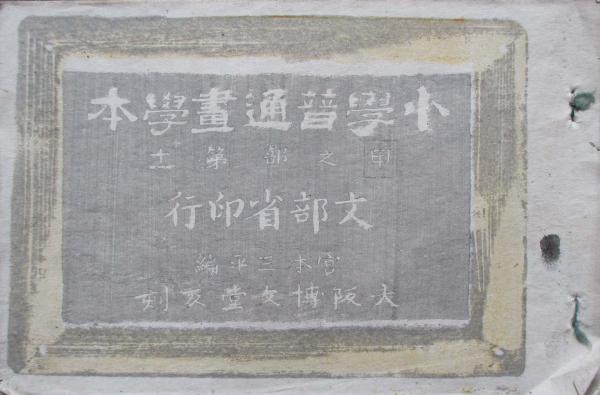 小學普通畫學本
甲之部第十一
文部省印行
宮本三平編
大阪博文堂反刻